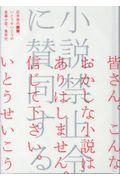 皆さん、こんな
おかしな小説は
ありはしません。
信じて下さい。
小説禁止令
に賛同する
いとうせいこう